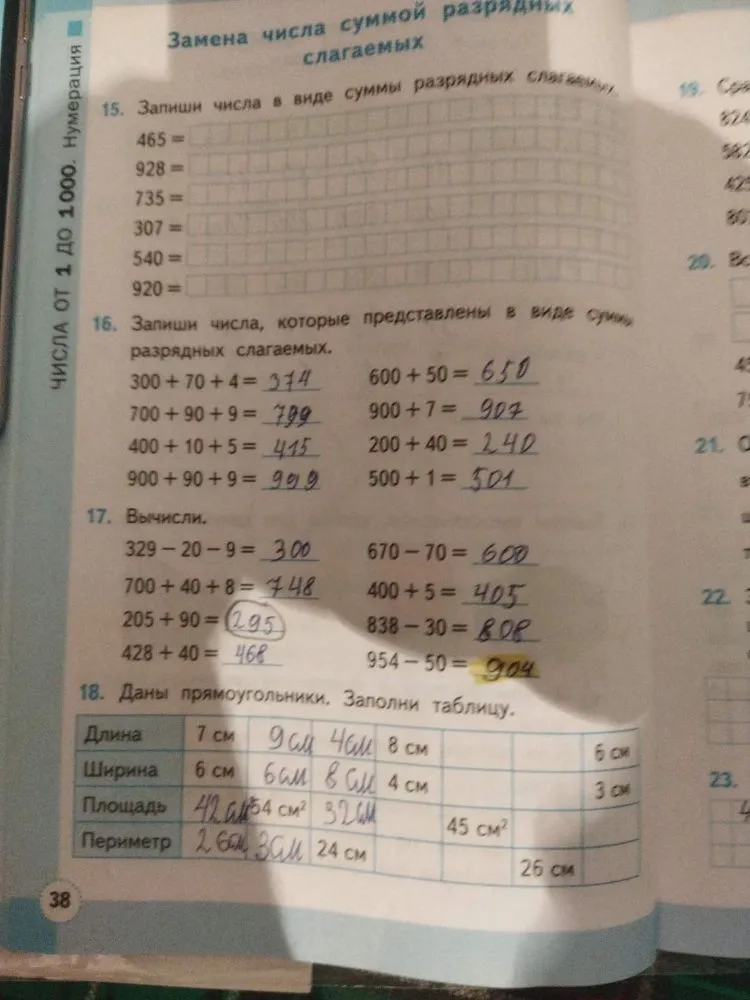 Замена числа суммой разрядных
слагаемых
ЧИСЛА ОТ 1 ДО 1000. Нумерация
15. Запиши числа в виде суммы разрядных слагаемых.
465 =
928 =
735 =
307 =
540 =
920 =
16. Запиши числа, которые представлены в виде суммы
разрядных слагаемых.
300 + 70 + 4 = 374 600 + 50 = 650
700 + 90 + 9 = 799 900 + 7 = 907
400 + 10 + 5 = 415 200 + 40 = 240
900 + 90 + 9 = 999 500 + 1 = 501
17. Вычисли.
329 − 20 − 9 = 300 670 − 70 = 600
700 + 40 + 8 = 748 400 + 5 = 405
205 + 90 = 295 838 − 30 = 808
428 + 40 = 468 954 − 50 = 904
18. Даны прямоугольники. Заполни таблицу.
Длина 7 см 9 см 4 см 8 см 6 см
Ширина 6 см 6 см 8 см 4 см 3 см
Площадь 42 см² 54 см² 32 см 45 см²
Периметр 26 см 3 см 24 см 26 см
38
19.
824
582
425
20.
21.
22.
23.